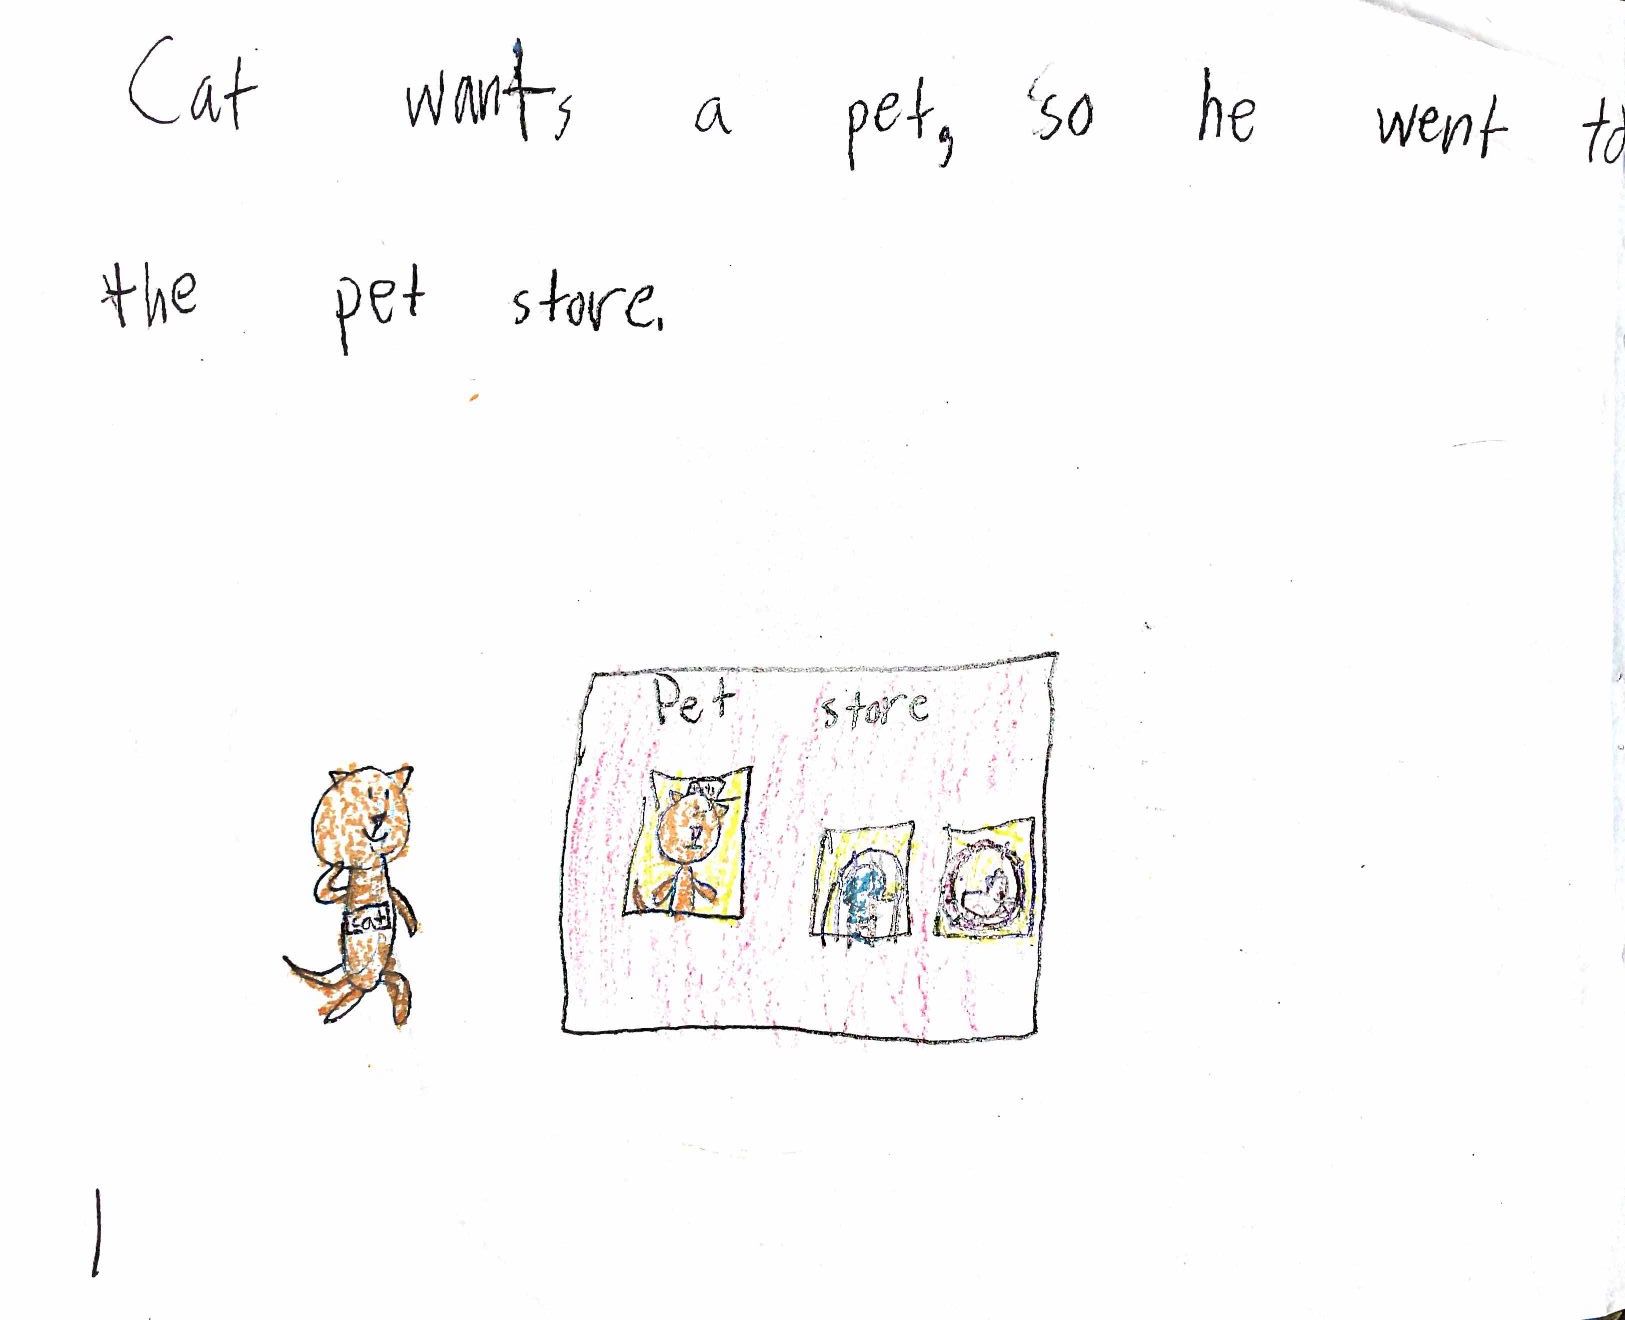 Cat wants a pet, so he went to
the pet store.
Pet store
cat
1